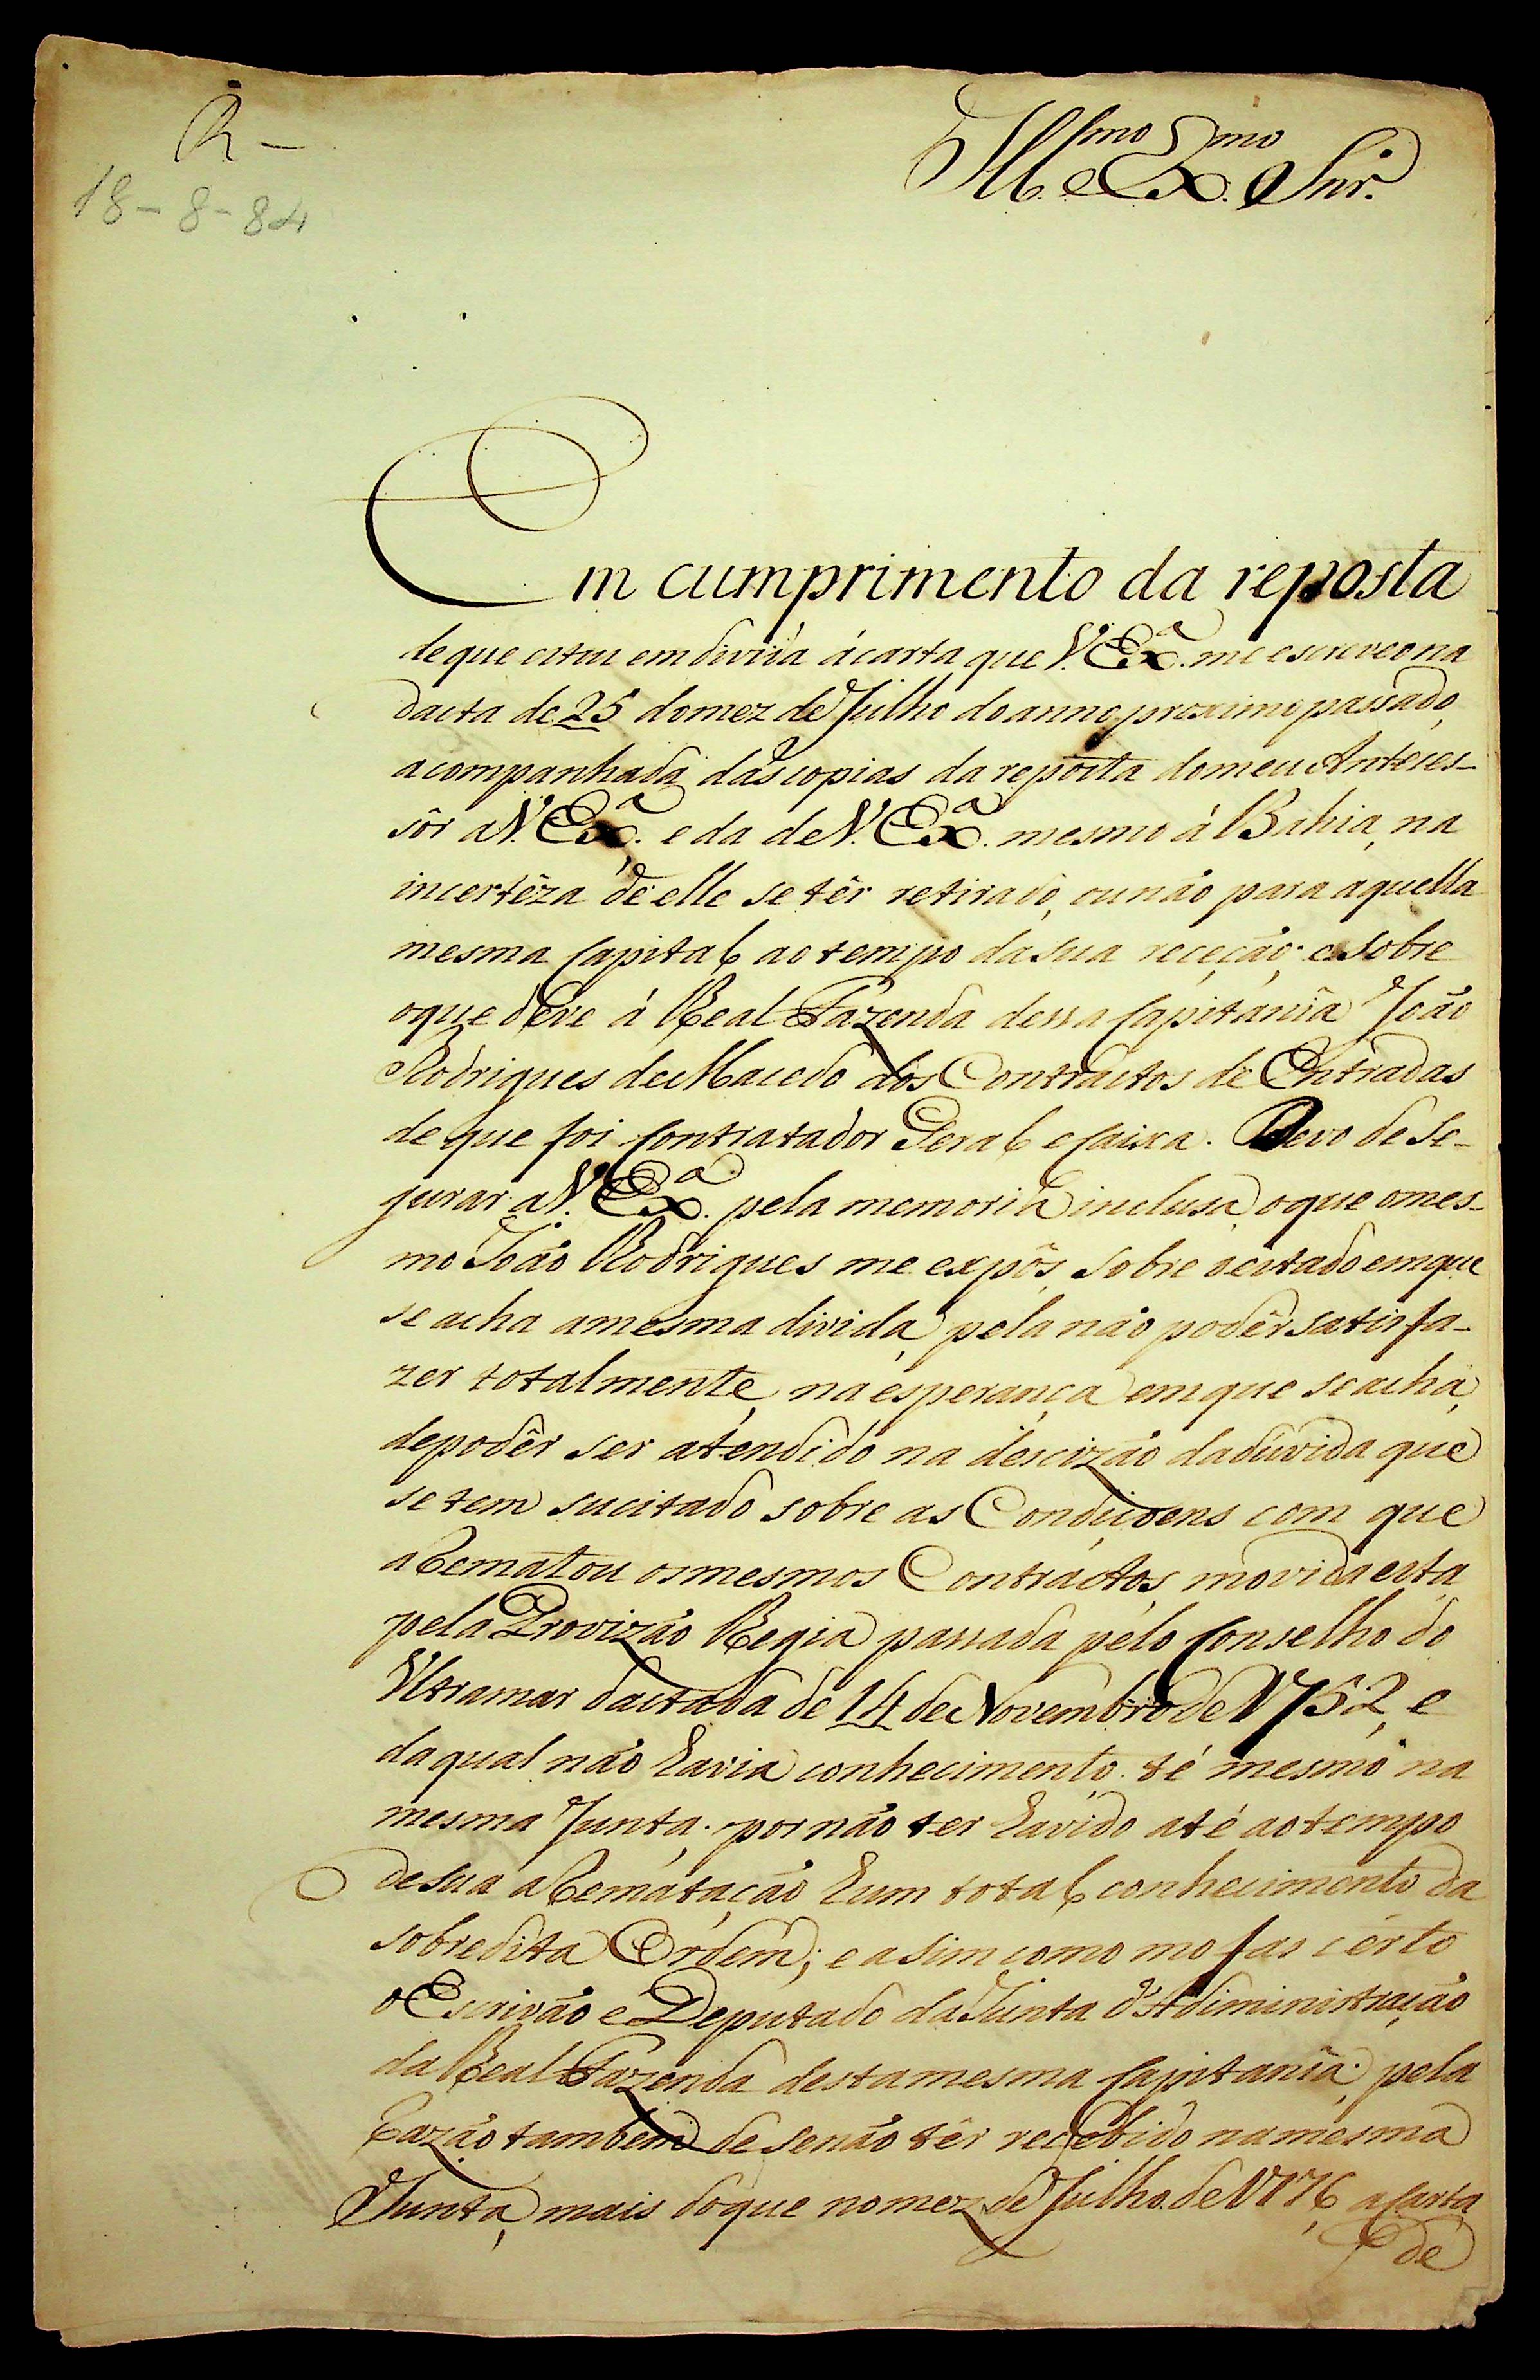 R -
18-8-84
Ill.mo e Ex.mo Snr.
Em cumprimento da reposta
de que estou em divida á carta que V. Ex.a me escreveo na
dacta de 25 do mez de Julho do anno proximo passado,
acompanhada das copias da reposta do meu Anteces-
sôr a V. Ex.a e da de V. Ex.a mesmo á Bahia, na
incertêza de elle se têr retirado, ou não para aquella
mesma Capital, ao tempo da sua receção; e sobre
o que deve á Real Fazenda dessa Capitanîa João
Rodrigues de Macedo dos Contractos de Entradas
de que foi Contratador Geral e Caixa. Devo de Se-
gurar a V. Ex.a pela memoria inclusa, o que o mes-
mo João Rodrigues me expôs, sobre o estado em que
se acha a mesma divida, pela não podêr satisfa-
zer totalmente, na esperança em que se acha,
de podêr ser atendido na descizão da dúvida que
se tem sucitado sobre as Condiçoens com que
aRematou os mesmos Contractos, movida esta
pela Provizão Regia passada pelo Conselho do
Vltramar dactada de 14 de Novembro de 1752, e
da qual não havia conhecimento té mesmo na
mesma Junta, por não ter havido até ao tempo
de sua aRematação hum total conhecimento da
sobredita Ordem; e asim como mo fas certo
o Escrivão e Deputado da Junta d'Adiministração
da Real Fazenda desta mesma Capitanîa; pela
Razão tambem de se não têr recebido na mesma
Junta, mais do que no mez de Julho de 1776, a Carta
de